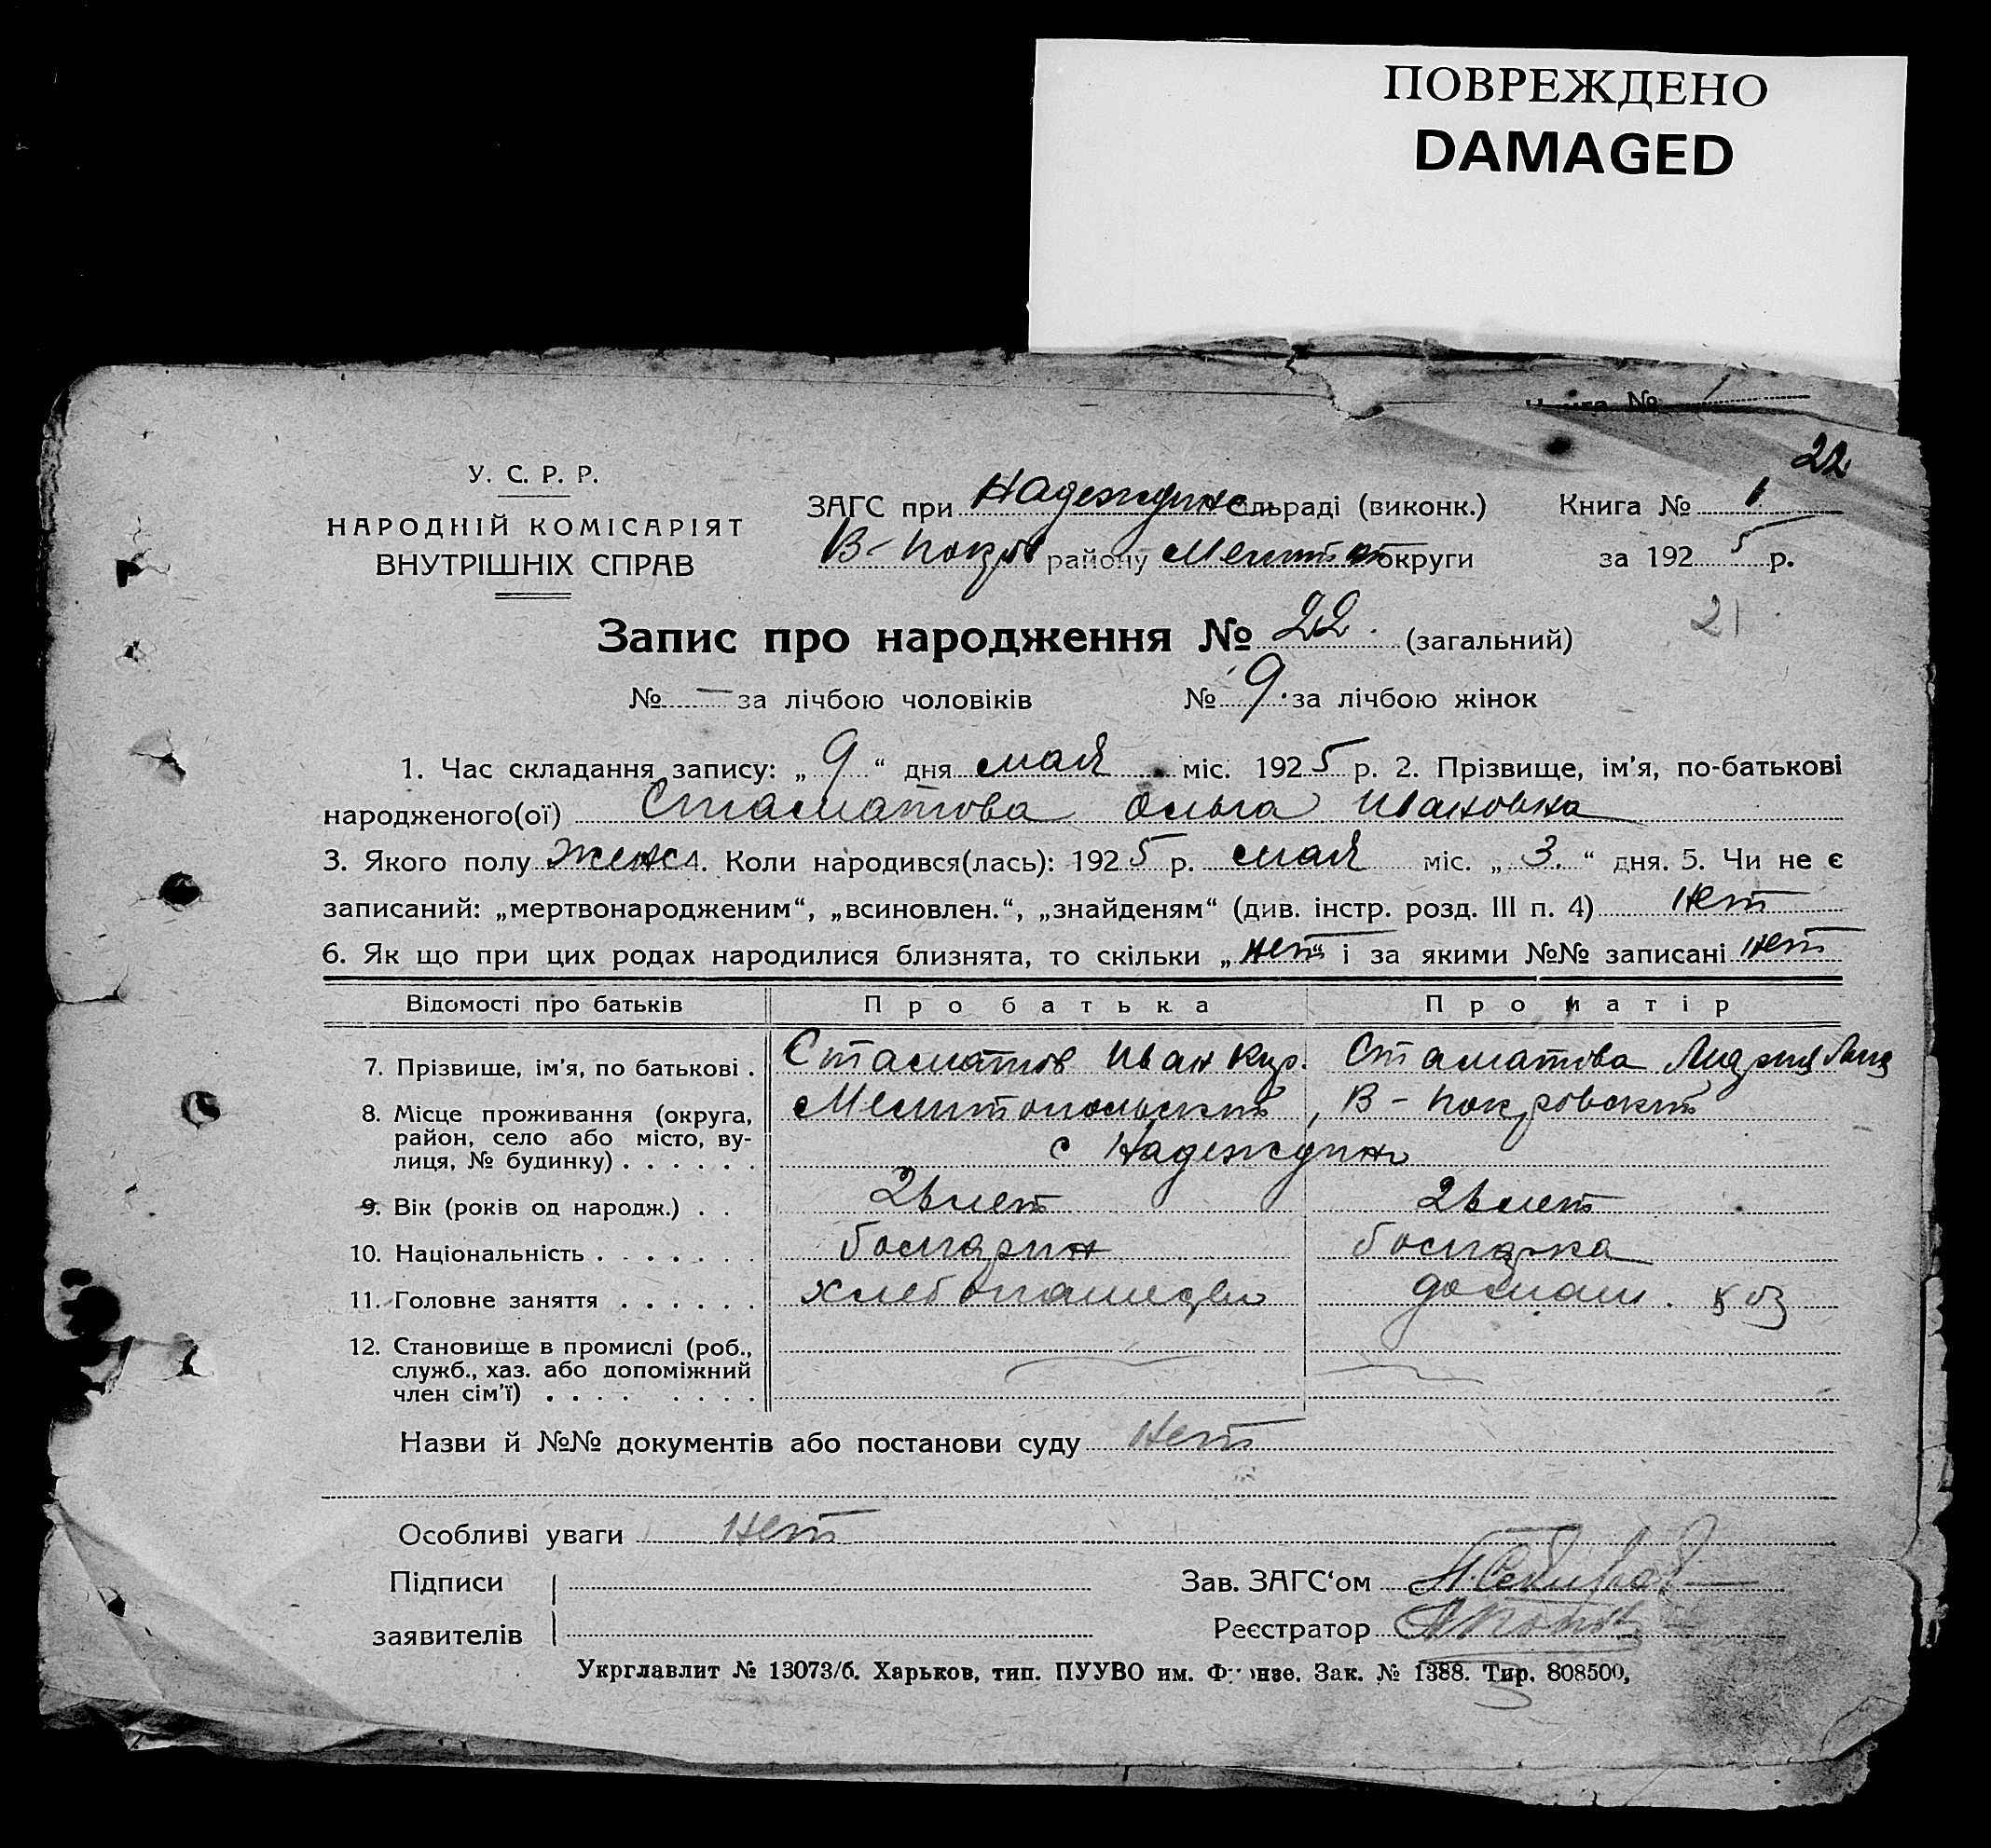 ПОВРЕЖДЕНО
DAMAGED
Книга №
22
У. С. Р. Р.
НАРОДНІЙ КОМІСАРІЯТ
ВНУТРІШНІХ СПРАВ
ЗАГС при Надеждинс сільраді (виконк.) Книга № 1
В-Покров району Мелитоп округи за 1925 р.
21
Запис про народження № 22. (загальний)
№ — за лічбою чоловіків № 9. за лічбою жінок
1. Час складання запису: „ 9 “ дня мая міс. 1925 р. 2. Прізвище, ім’я, по-батькові
народженого(ої) Стаматова Ольга Ивановна
3. Якого полу женс 4. Коли народився(лась): 1925 р. мая міс. „ 3. “ дня. 5. Чи не є
записаний: „мертвонародженим“, „всиновлен.“, „знайденям“ (див. інстр. розд. III п. 4) нет
6. Як що при цих родах народилися близнята, то скільки „ нет “ і за якими №№ записані нет
Відомості про батьків Про батька Про матір
7. Прізвище, ім’я, по батькові . Стаматов Иван Стаматова
8. Місце проживання (округа, район, село або місто, вулиця, № будинку) . . . . . . Мелитопольский, В-Покровский
с Надеждин
9. Вік (років од народж.) . . лет лет
10. Національність . . . . . . . болгарин болгарка
11. Головне заняття . . . . . . хлебопашедво домаш. хоз
12. Становище в промислі (роб., служб., хаз. або допоміжний член сім’ї) . . . . . . . .
Назви й №№ документів або постанови суду нет
Особливі уваги нет
Підписи
заявителів
Зав. ЗАГС‘ом
Реєстратор
Укрглавлит № 13073/б. Харьков, тип. ПУУВО им. Фрунзе. Зак. № 1388. Тир. 808500,